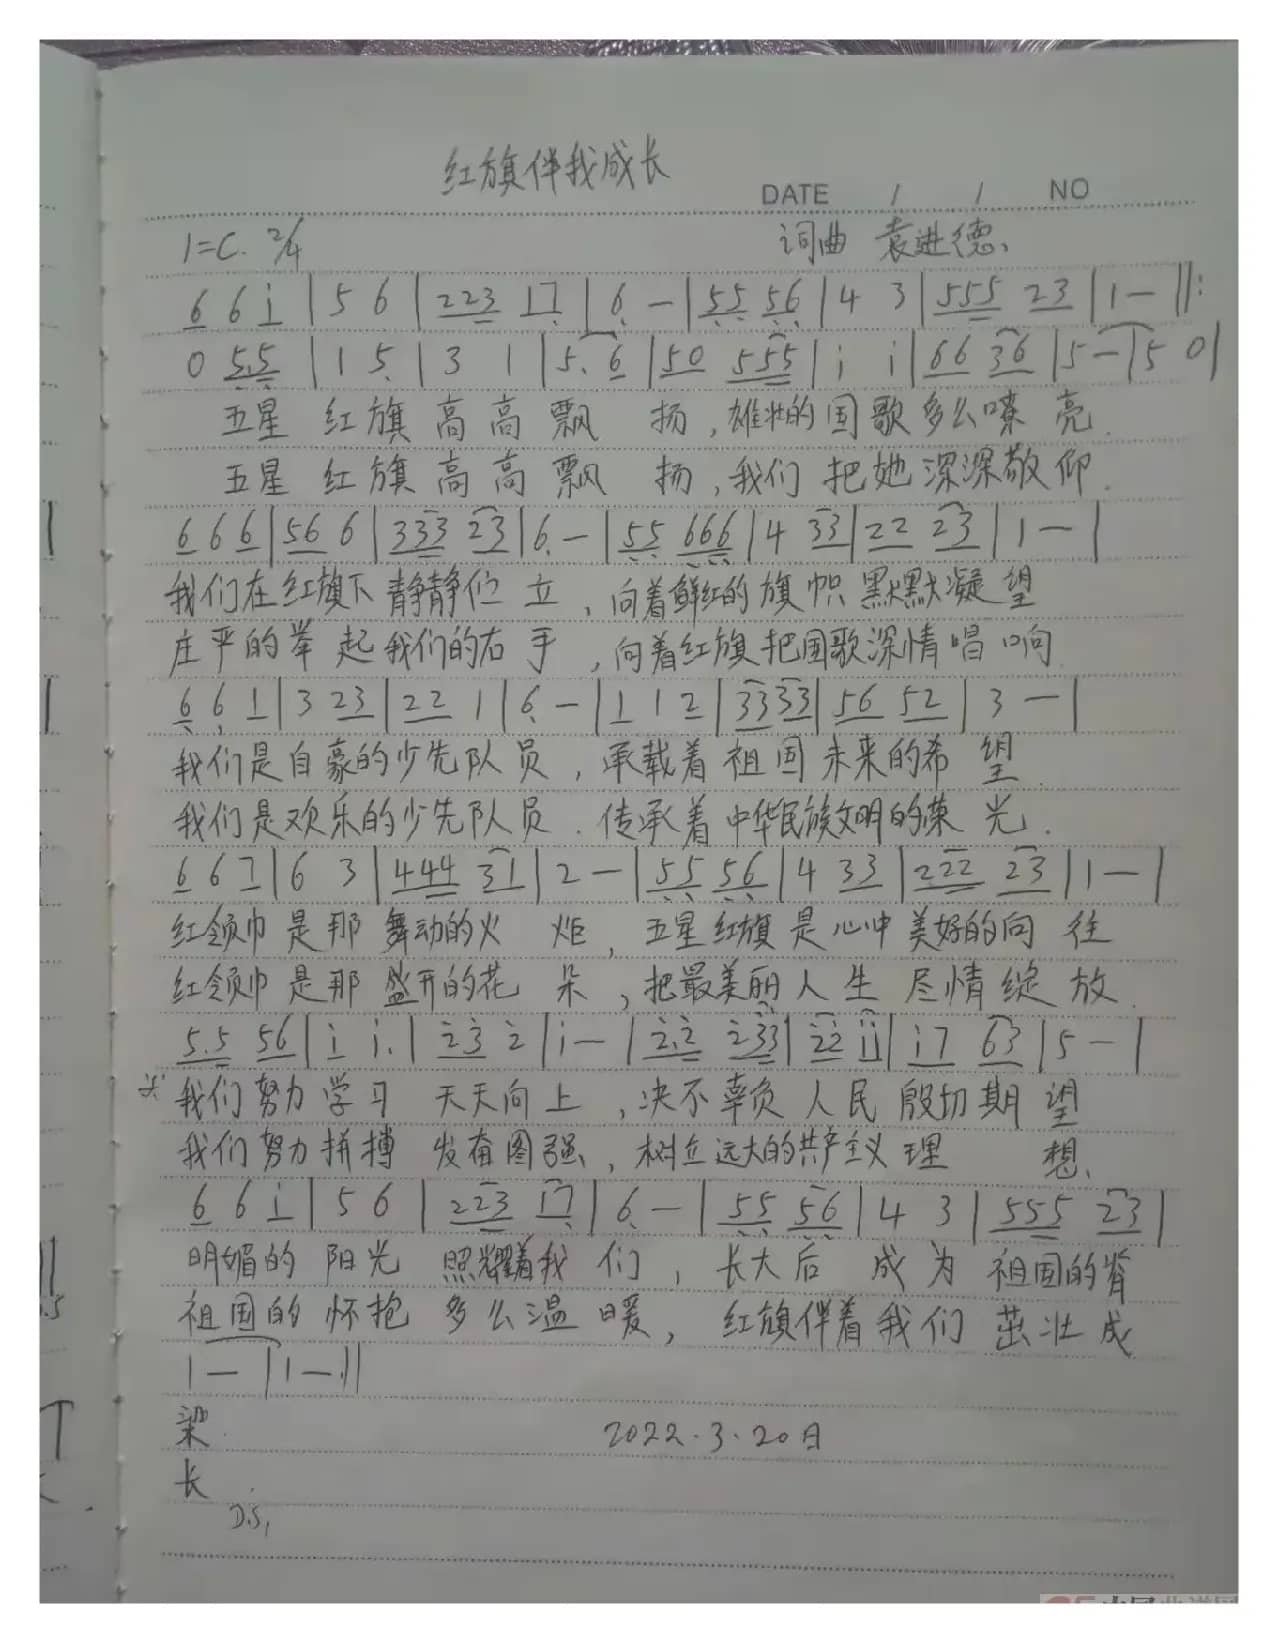 红旗伴我成长
DATE / / NO
1=C. 2/4 词曲 袁进德、
6 6 i | 5 6 | 223 17 | 6 — | 55 56 | 4 3 | 555 23 | 1 — ‖:
0 5.5 | 1 5 | 3 1 | 5. 6 | 50 555 | i i | 66 36 | 5 — | 5 0 |
五星 红旗高高飘 扬,雄壮的国歌多么嘹亮.
五星 红旗高高飘 扬,我们把她深深敬仰.
6 6 6 | 56 6 | 333 23 | 6. — | 55 666 | 4 33 | 22 23 | 1 — |
我们在红旗下静静伫立,向着鲜红的旗帜默默凝望
庄严的举起我们的右手,向着红旗把国歌深情唱响.
6 6 1 | 3 23 | 22 1 | 6 — | 1 1 2 | 33 33 | 56 52 | 3 — |
我们是自豪的少先队员,承载着祖国未来的希望.
我们是欢乐的少先队员.传承着中华民族文明的荣光.
6 6 7 | 6 3 | 444 31 | 2 — | 55 56 | 4 33 | 222 23 | 1 — |
红领巾是那舞动的火炬,五星红旗是心中美好的向往
红领巾是那盛开的花朵,把最美丽人生尽情绽放.
5.5 56 | i i. | 23 2 | i — | 2.2 233 | 22 ii | i7 63 | 5 — |
我们努力学习天天向上,决不辜负人民殷切期望
我们努力拼搏发奋图强,树立远大的共产主义理想、
6 6 i | 5 6 | 223 i7 | 6. — | 55 56 | 4 3 | 555 23 |
明媚的阳光照耀着我们,长大后成为祖国的脊
祖国的怀抱多么温暖,红旗伴着我们茁壮成
1 — | 1 — ‖
梁. 2022.3.20日
长
D.S,